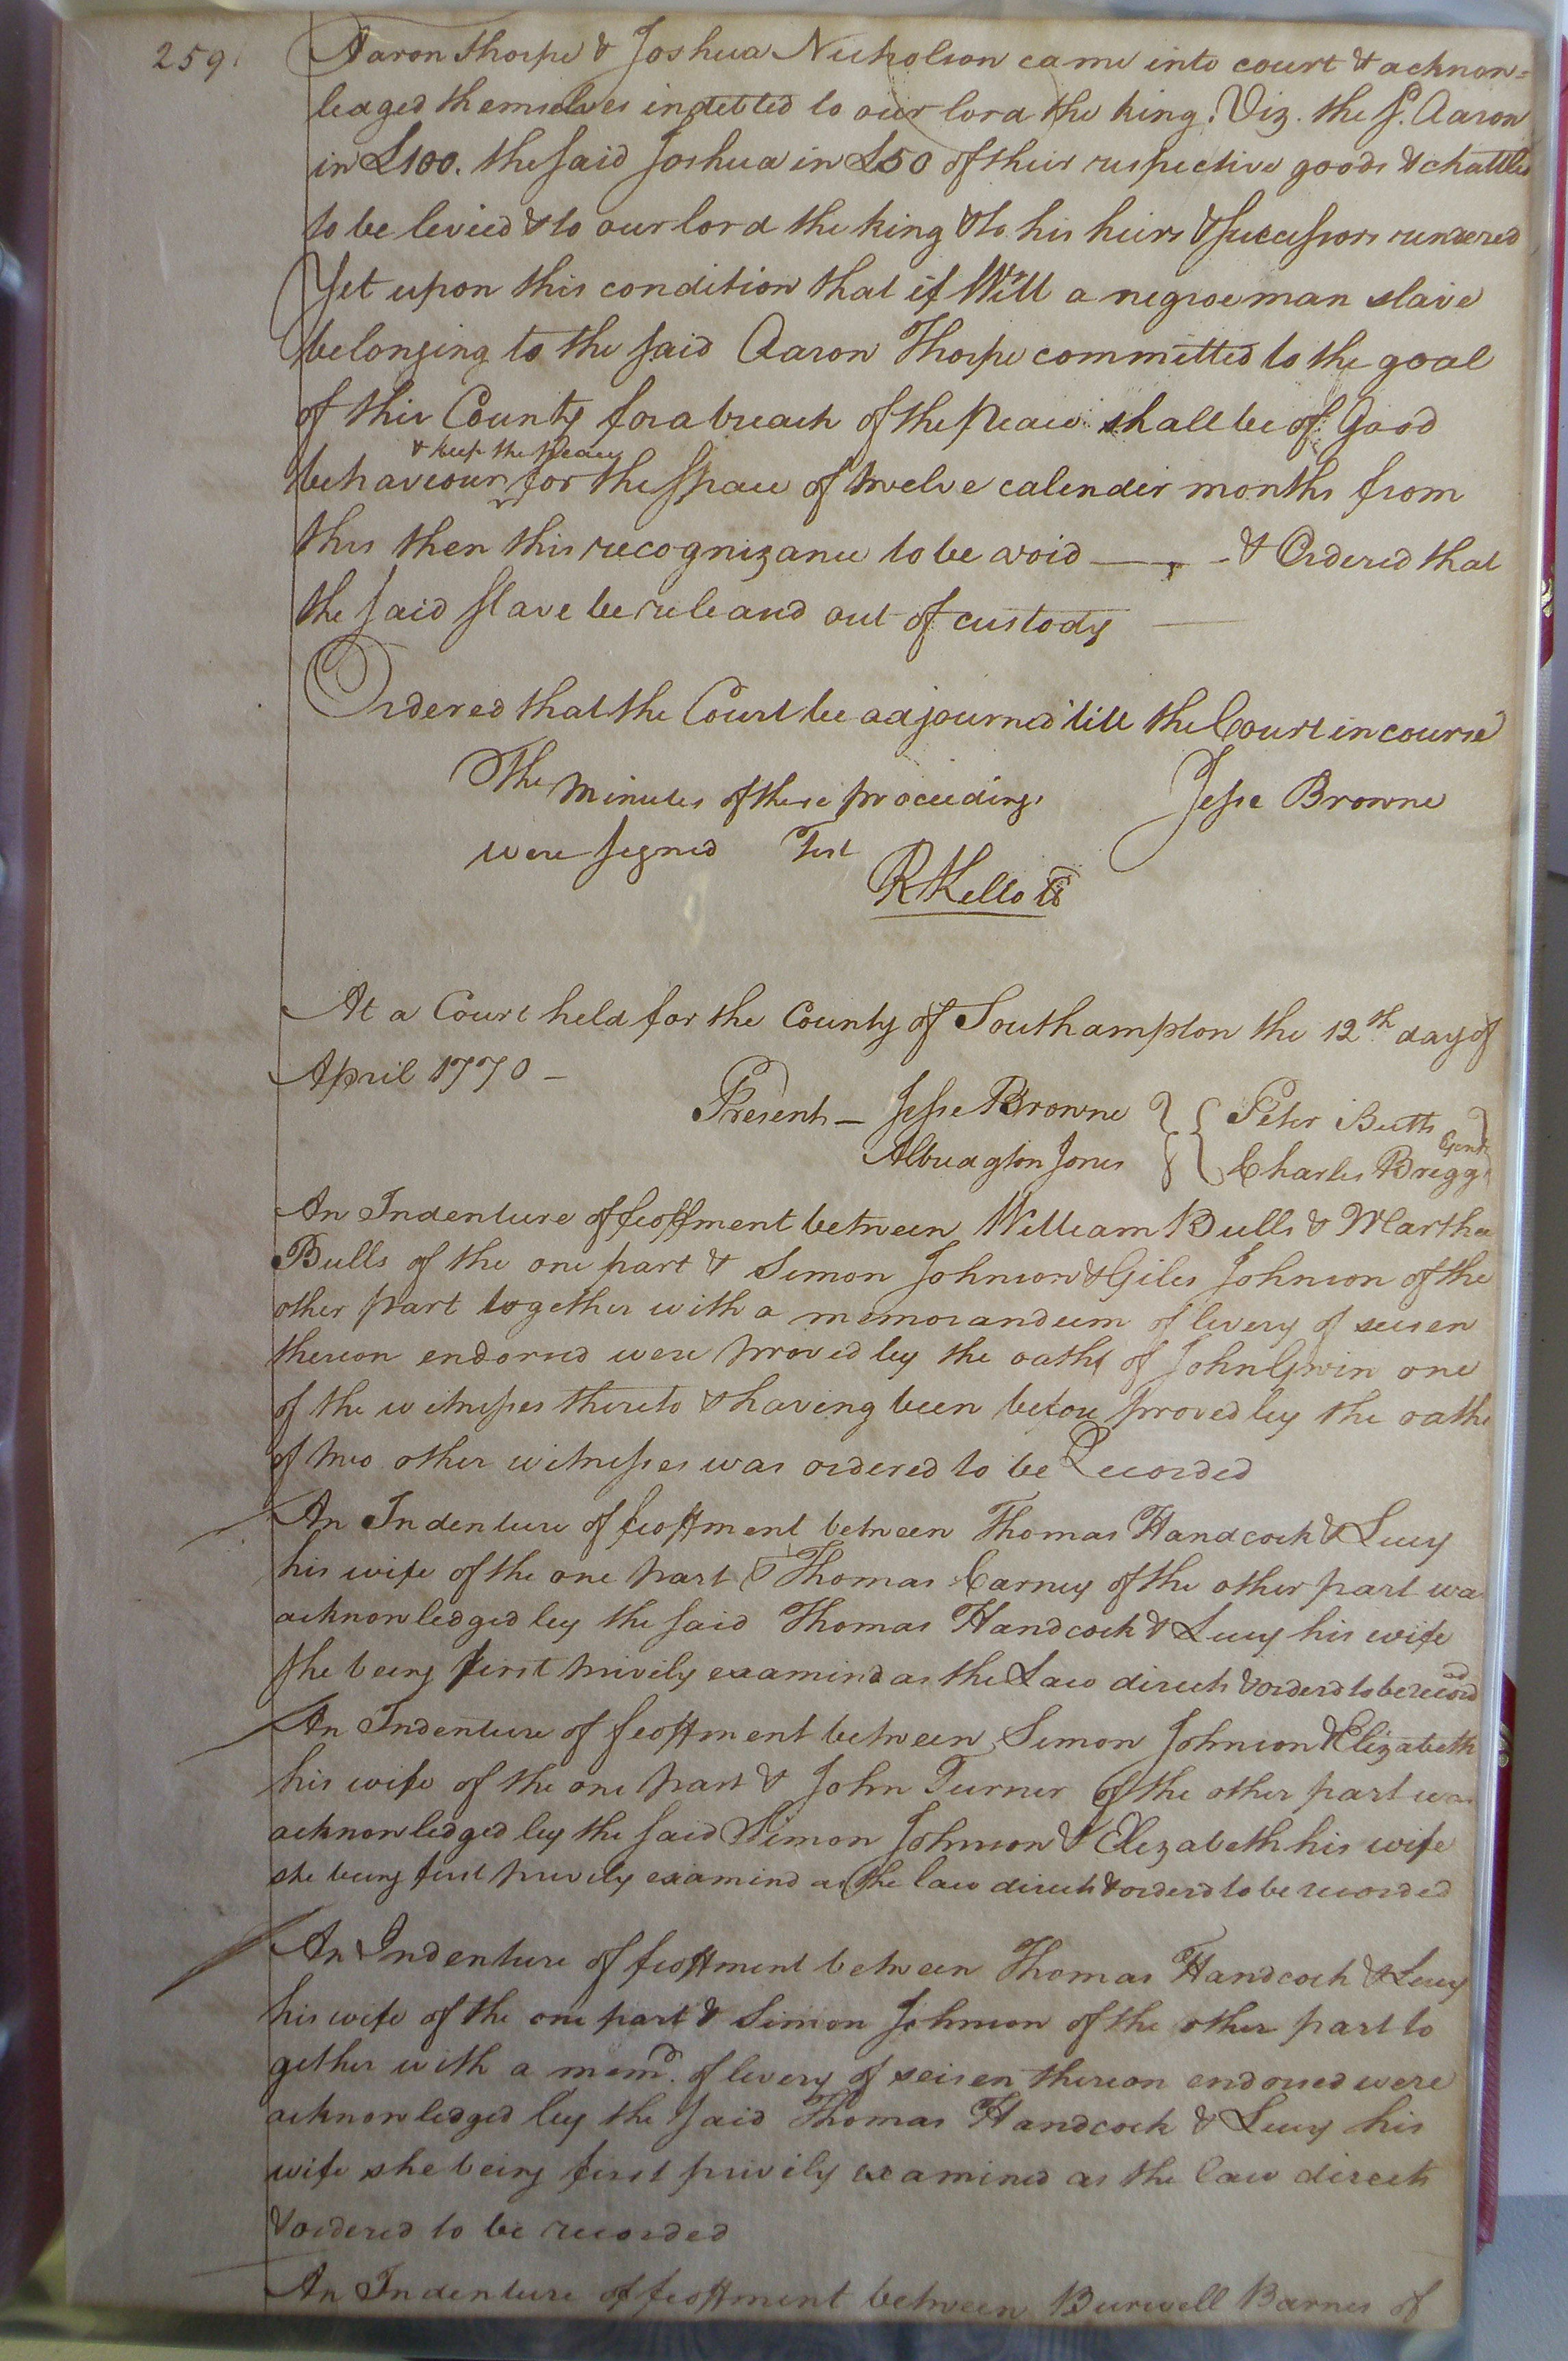 259
Aaron Thorpe & Joshua Nicholson came into court & acknow=
ledged themselves indebted to our lord the king, Viz. the sd. Aaron
in £100. the said Joshua in £50 of their respective goods & chattles
to be levied & to our lord the king & to his heirs & successors rendered
Yet upon this condition that if Will a negroe man slave
belonging to the said Aaron Thorpe committed to the goal
of this County for a breach of the peace shall be of Good
& keep the peace
behaveour for the space of twelve calender months from
this then this recognizance to be void — & Ordered that
the said slave be releasd out of custody —
Ordered that the Court be adjourned till the Court in course
The minutes of these proceedings Jesse Browne
were signed Test
R Kello
At a Court held for the County of Southampton the 12th day of
April 1770 –
Present – Jesse Browne Peter Butts
Albridgton Jones Charles Briggs Gent
An Indenture of feoffment between William Bulls & Martha
Bulls of the one part & Simon Johnson & Giles Johnson of the
other part together with a memorandum of livery of seisen
thereon endorsed were proved by the oath of John Gwin one
of the witnesses thereto & having been before proved by the oaths
of two other witnesses was ordered to be Recorded
An Indenture of feoffment between Thomas Handcock & Lucy
his wife of the one part & Thomas Carney of the other part was
acknowledged by the said Thomas Handcock & Lucy his wife
she being first privily examind as the Law directs & orderd to be recorded
An Indenture of feoffment between Simon Johnson & Elizabeth
his wife of the one part & John Turner of the other part was
acknowledged by the said Simon Johnson & Elizabeth his wife
she being first privily examind as the law directs & orderd to be recorded
An Indenture of feoffment between Thomas Handcock & Lucy
his wife of the one part & Simon Johnson of the other part to
gether with a memd. of livery of seisen thereon endorsed were
acknowledged by the said Thomas Handcock & Lucy his
wife she being first privily examined as the law directs
& ordered to be recorded
An Indenture of feoffment between Burwell Barnes of